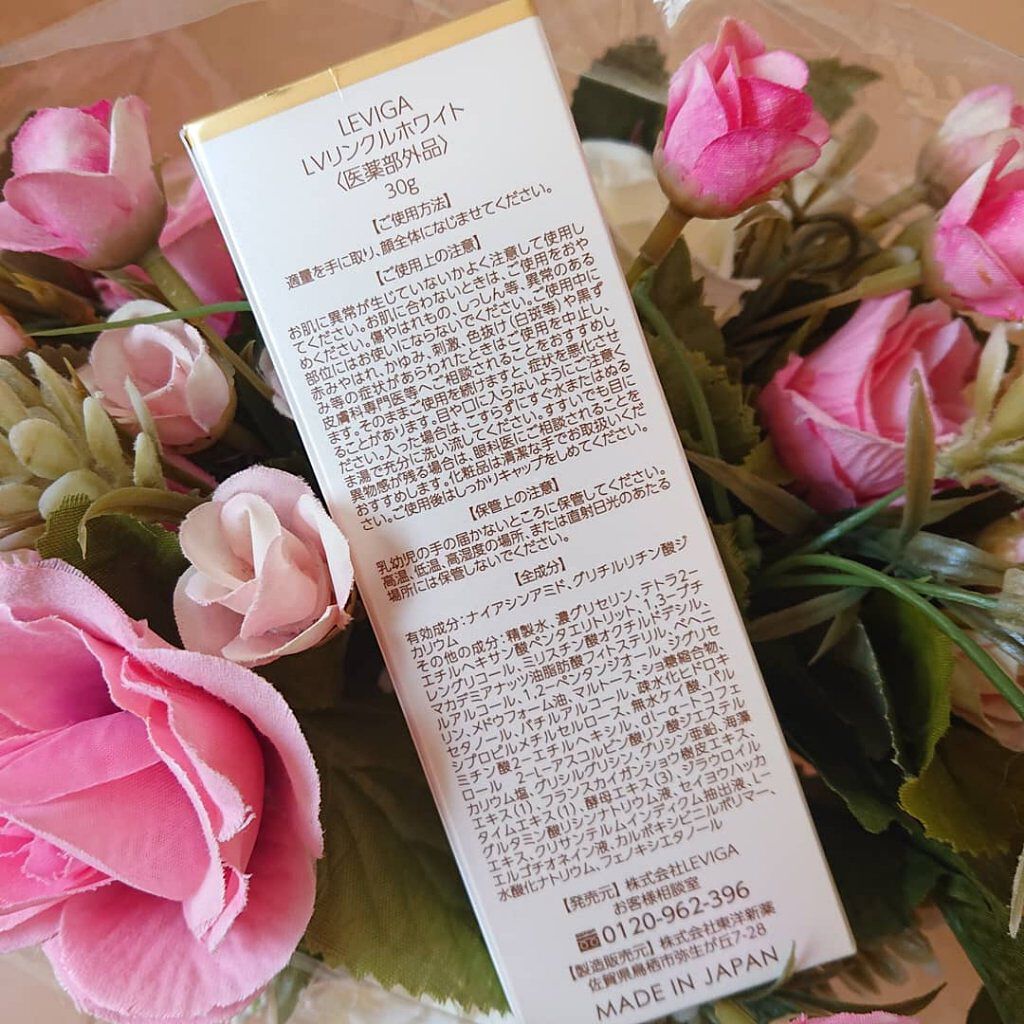 LEVIGA
LVリンクルホワイト
〈医薬部外品〉
30g
【ご使用方法】
適量を手に取り、顔全体になじませてください。
【ご使用上の注意】
お肌に異常が生じていないかよく注意して使用し
てください。お肌に合わないときは、ご使用をおや
めください。傷やはれもの、しっしん等、異常のある
部位にはお使いにならないでください。ご使用中に
赤みやはれ、かゆみ、刺激、色抜け(白斑等)や黒ず
み等の症状があらわれたときはご使用を中止し、
皮膚科専門医等へご相談されることをおすすめし
ます。そのままご使用を続けますと、症状を悪化させ
ることがあります。目や口に入らないようにご注意く
ださい。入った場合は、こすらずにすぐ水またはぬる
ま湯で充分に洗い流してください。すすいでも目に
異物感が残る場合は、眼科医にご相談されることを
おすすめします。化粧品は清潔な手でお取扱いくだ
さい。ご使用後はしっかりキャップをしめてください。
【保管上の注意】
乳幼児の手の届かないところに保管してください。
高温、低温、高湿度の場所、または直射日光のあたる
場所には保管しないでください。
【全成分】
有効成分:ナイアシンアミド、グリチルリチン酸ジ
カリウム
その他の成分:精製水、濃グリセリン、テトラ2-
エチルヘキサン酸ペンタエリトリット、1,3-ブチ
レングリコール、ミリスチン酸オクチルドデシル、
マカデミアナッツ油脂肪酸フィトステリル、ベヘニ
ルアルコール、1,2-ペンタンジオール、ジグリセ
リン、メドウフォーム油、マルトース・ショ糖縮合物、
セタノール、バチルアルコール、疎水化ヒドロキ
シプロピルメチルセルロース、無水ケイ酸、パル
ミチン酸2-エチルヘキシル、dl-α-トコフェ
ロール 2-L-アスコルビン酸リン酸ジエステル
カリウム塩、グリシルグリシン、グリシン亜鉛、海藻
エキス(1)、フランスカイガンショウ樹皮エキス、
タイムエキス(1)、酵母エキス(3)、ジラウロイル
グルタミン酸リシンナトリウム液、セイヨウハッカ
エキス、クリサンテルムインディクム抽出液、L-
エルゴチオネイン液、カルボキシビニルポリマー、
水酸化ナトリウム、フェノキシエタノール
【発売元】株式会社LEVIGA
お客様相談室
0120-962-396
【製造販売元】株式会社東洋新薬
佐賀県鳥栖市弥生が丘7-28
MADE IN JAPAN